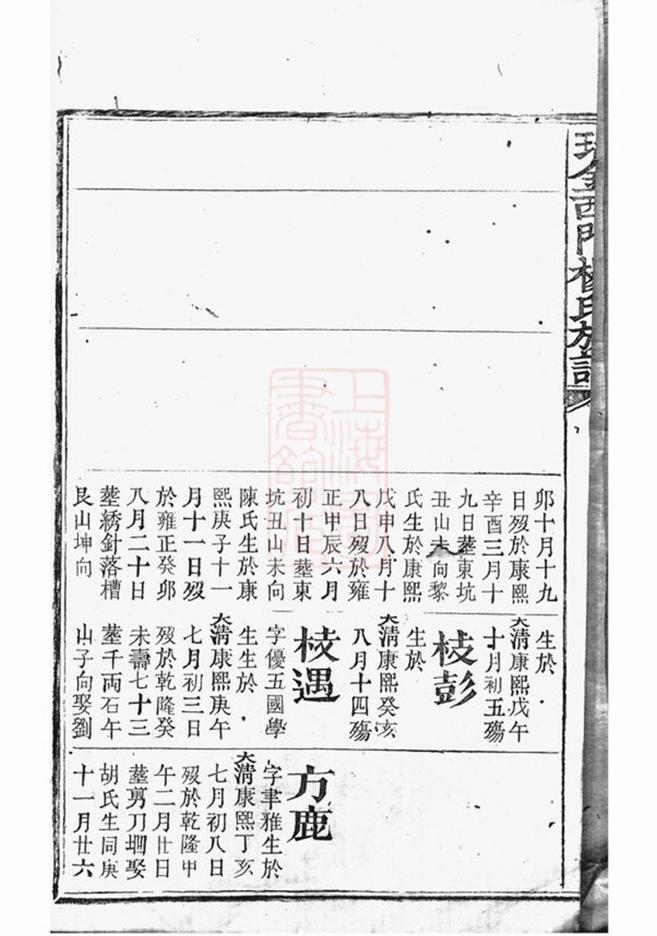 玛金西門楊氏族譜
卯十月十九
日歿於康熙
辛酉三月十
九日塟東坑
丑山未向黎
氏生於康熙
戊申八月十
八日歿於雍
正甲辰六月
初十日塟東
坑丑山未向
陳氏生於康
熙庚子十一
月十一日歿
於雍正癸卯
八月二十日
塟綉針落槽
艮山坤向
生於
大清康熙戊午
十月初五殤
枝彭
生於
大清康熙癸亥
八月十四殤
枝遇
字優五國學
生生於
大清康熙庚午
七月初三日
歿於乾隆癸
未壽七十三
塟千両石午
山子向娶劉
方鹿
字聿雅生於
大清康熙丁亥
七月初八日
歿於乾隆甲
午二月廿日
塟剪刀㘭娶
胡氏生同庚
十一月廿六
上海圖書館藏